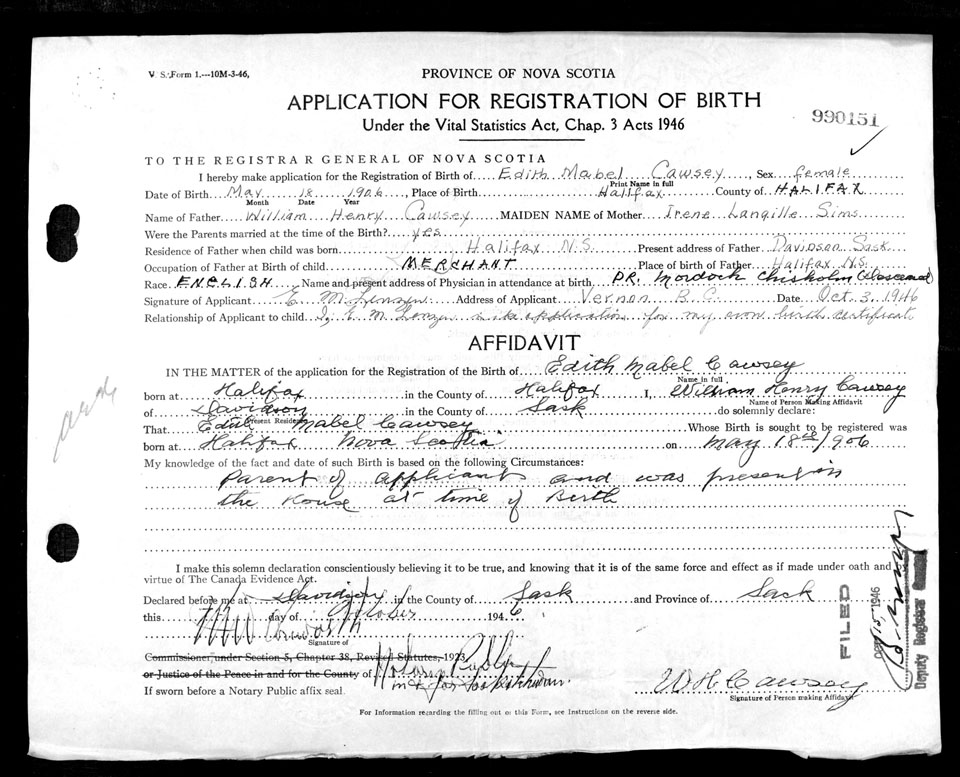 V. S. Form 1.---10M-3-46,
PROVINCE OF NOVA SCOTIA
APPLICATION FOR REGISTRATION OF BIRTH
Under the Vital Statistics Act, Chap. 3 Acts 1946
990151
TO THE REGISTRAR GENERAL OF NOVA SCOTIA
I hereby make application for the Registration of Birth of Edith Mabel Cawsey, Sex female
Print Name in full
Date of Birth May 18 1906, Place of Birth Halifax County of HALIFAX
Month Date Year
Name of Father William Henry Cawsey MAIDEN NAME of Mother Irene Langille Sims
Were the Parents married at the time of the Birth? yes
Residence of Father when child was born Halifax N.S. Present address of Father Davidson Sask
Occupation of Father at Birth of child MERCHANT Place of birth of Father Halifax N.S.
Race ENGLISH Name and present address of Physician in attendance at birth DR. Mordock Chisholm (deceased)
Signature of Applicant E. M. Address of Applicant Vernon B. C. Date Oct. 3, 1946
Relationship of Applicant to child I, E. M. application for my own birth certificate
AFFIDAVIT
IN THE MATTER of the application for the Registration of the Birth of Edith Mabel Cawsey
Name in full
born at Halifax in the County of Halifax I, William Henry Cawsey
Name of Person Making Affidavit
of Davidson in the County of Sask do solemnly declare:
Present Residence
That Edith Mabel Cawsey Whose Birth is sought to be registered was
born at Halifax Nova Scotia on May 18th 1906
My knowledge of the fact and date of such Birth is based on the following Circumstances:
Parent of applicant and was present in
the House at time of Birth
I make this solemn declaration conscientiously believing it to be true, and knowing that it is of the same force and effect as if made under oath and by
virtue of The Canada Evidence Act.
Declared before me at Davidson in the County of Sask and Province of Sask
this day of October 1946
Signature of
Commissioner, under Section 5, Chapter 38, Revised Statutes, 1923
or Justice of the Peace in and for the County of Notary Public
in & for Saskatchewan.
If sworn before a Notary Public affix seal.
W H Cawsey
Signature of Person making Affidavit
For Information regarding the filling out of this Form, see Instructions on the reverse side.
FILED
15 1946
Deputy Registrar